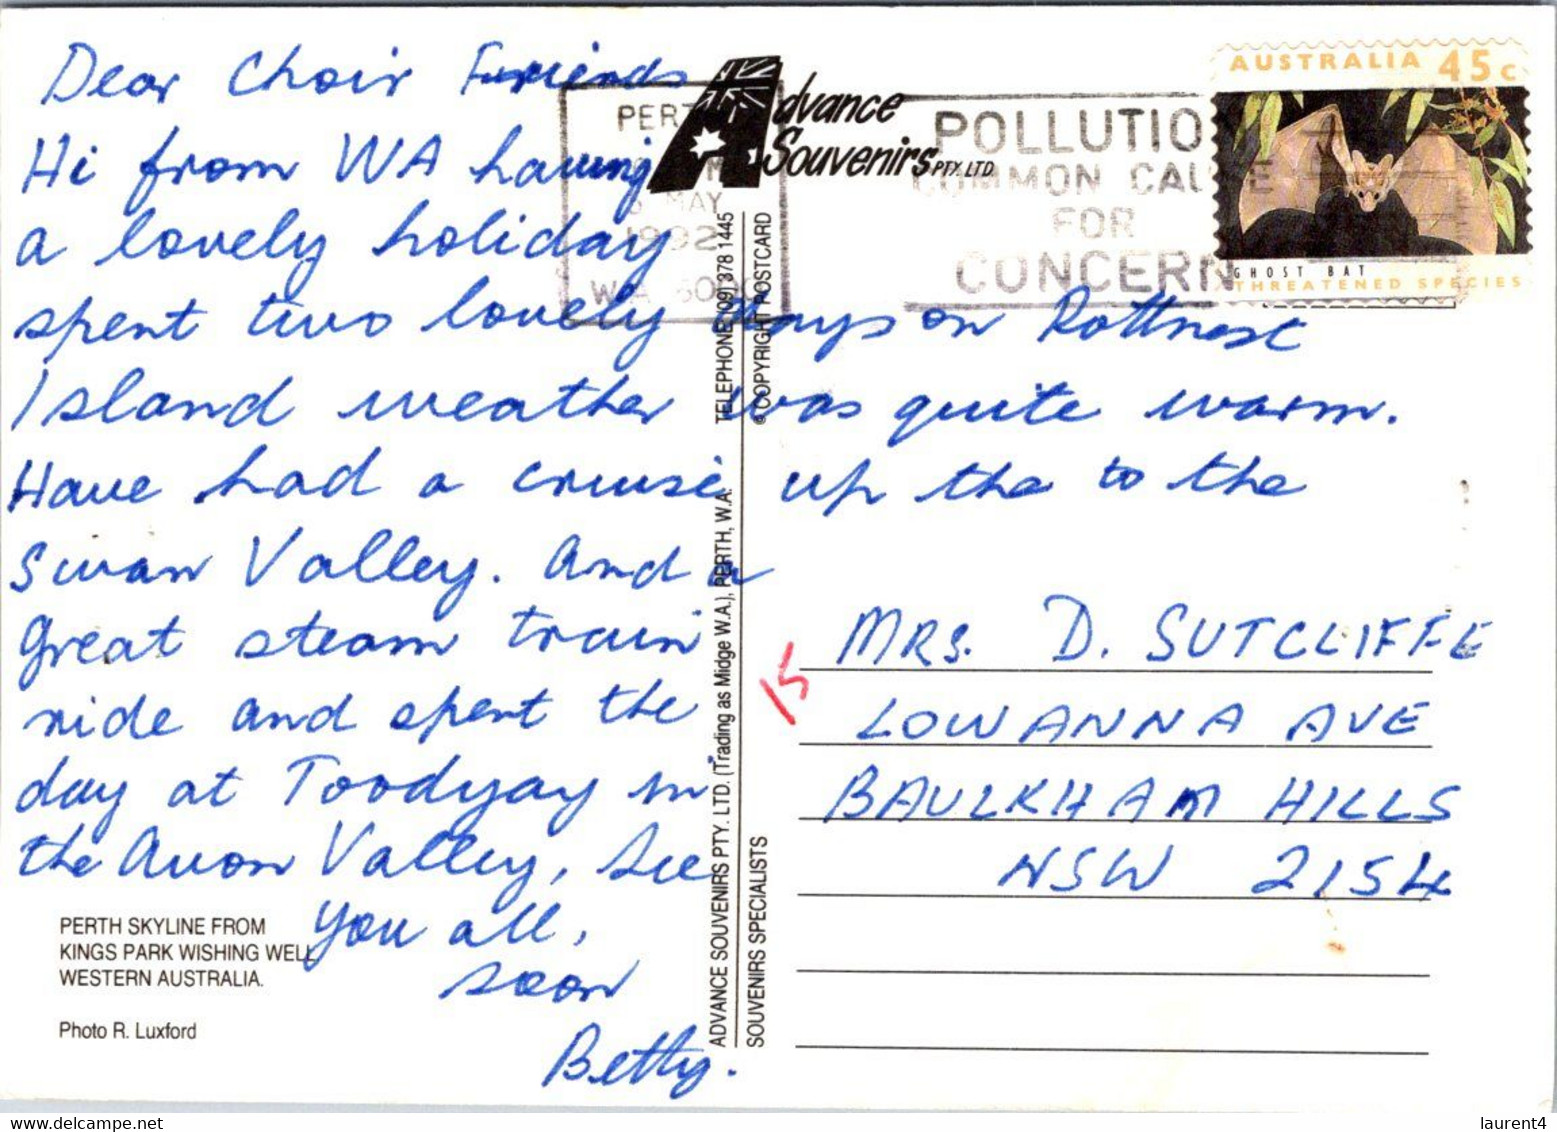 Dear Choir Friends
Hi from WA having
a lovely holiday
spent two lovely days on Rottnest
Island weather was quite warm.
Have had a cruise up the to the
Swan Valley. And a
great steam train
ride and spent the
day at Toodyay in
the Avon Valley, See
you all,
soon
Betty.
PERTH SKYLINE FROM
KINGS PARK WISHING WELL
WESTERN AUSTRALIA.
Photo R. Luxford
Advance
Souvenirs PTY. LTD.
PERT
MAY
1992
POLLUTIO
COMMON CAUSE
FOR
CONCERN
AUSTRALIA 45c
GHOST BAT
THREATENED SPECIES
ADVANCE SOUVENIRS PTY. LTD. (Trading as Midge W.A.), PERTH, W.A. TELEPHONE (09) 378 1445
SOUVENIRS SPECIALISTS © COPYRIGHT POSTCARD
15
MRS. D. SUTCLIFFE
LOWANNA AVE
BAULKHAM HILLS
NSW 2154
laurent4